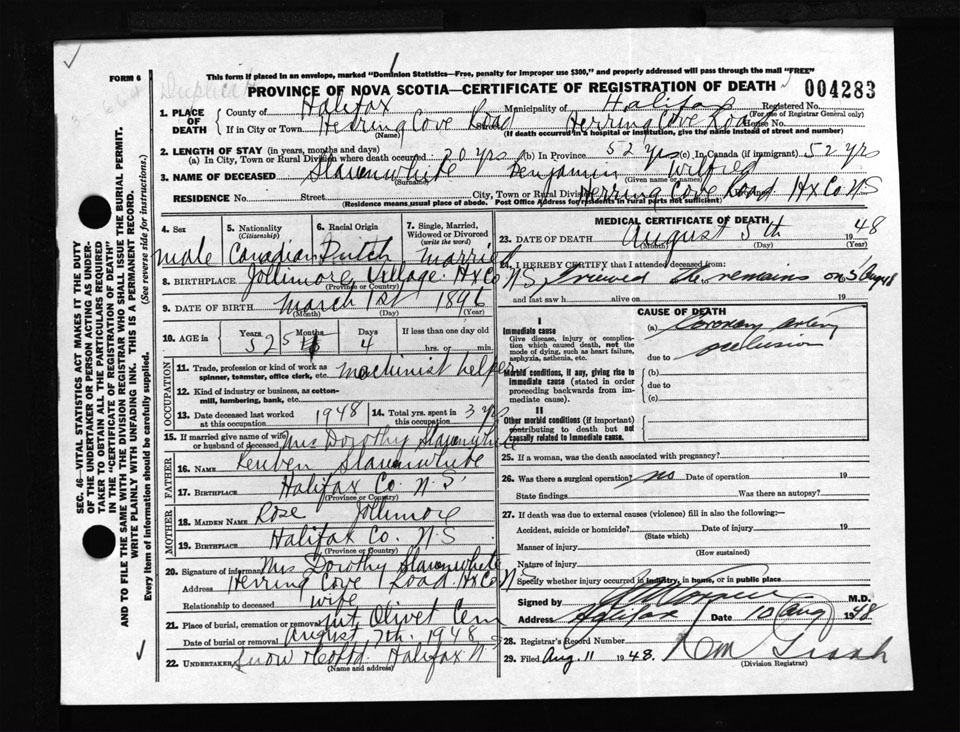 FORM 6
Duplicate
This form if placed in an envelope, marked "Dominion Statistics—Free, penalty for improper use $300," and properly addressed will pass through the mail "FREE"
PROVINCE OF NOVA SCOTIA—CERTIFICATE OF REGISTRATION OF DEATH
004283
1. PLACE OF DEATH
County of Halifax Municipality of Halifax Registered No.
(For use of Registrar General only)
If in City or Town Herring Cove Road Street Herring Cove Road House No.
(Name) (If death occurred in a hospital or institution, give the name instead of street and number)
2. LENGTH OF STAY (in years, months and days)
(a) In City, Town or Rural Division where death occurred 20 yrs (b) In Province 52 yrs (c) In Canada (if immigrant) 52 yrs
3. NAME OF DECEASED Slaunwhite Benjamin Wilfred
(Surname) (Given name or names)
RESIDENCE No. Street City, Town or Rural Division Herring Cove Road Hx Co NS
(Residence means usual place of abode. Post Office Address for residents in rural parts not sufficient)
4. Sex
5. Nationality (Citizenship)
6. Racial Origin
7. Single, Married, Widowed or Divorced (write the word)
male Canadian Dutch Married
8. BIRTHPLACE Jollimore Village Hx Co NS
(Province or Country)
9. DATE OF BIRTH March 1st 1896
(Month) (Day) (Year)
10. AGE in Years Months Days If less than one day old
52 5 4 hrs. or min.
OCCUPATION
11. Trade, profession or kind of work as spinner, teamster, office clerk, etc. machinist helper
12. Kind of industry or business, as cotton-mill, lumbering, bank, etc.
13. Date deceased last worked at this occupation 1948
14. Total yrs. spent in this occupation 3 yrs
15. If married give name of wife or husband of deceased Mrs Dorothy Slaunwhite
FATHER
16. NAME Reuben Slaunwhite
17. BIRTHPLACE Halifax Co. N.S.
(Province or Country)
MOTHER
18. MAIDEN NAME Rose Jollimore
19. BIRTHPLACE Halifax Co. N.S.
(Province or Country)
20. Signature of informant Mrs Dorothy Slaunwhite
Address Herring Cove Road Hx Co N
Relationship to deceased wife
21. Place of burial, cremation or removal Mt Olivet Cem
Date of burial or removal August 7th. 1948
22. UNDERTAKER Snow & Co Ltd. Halifax N S
(Name and address)
MEDICAL CERTIFICATE OF DEATH
23. DATE OF DEATH August 5th 1948
(Month) (Day) (Year)
24. I HEREBY CERTIFY that I attended deceased from:
I viewed the remains on 5 Aug 48
and last saw h alive on 19
CAUSE OF DEATH
I
Immediate cause
Give disease, injury or complication which caused death, not the mode of dying, such as heart failure, asphyxia, asthenia, etc.
(a) Coronary artery
due to occlusion
Morbid conditions, if any, giving rise to immediate cause (stated in order proceeding backwards from immediate cause).
(b)
due to
(c)
II
Other morbid conditions (if important) contributing to death but not causally related to immediate cause.
25. If a woman, was the death associated with pregnancy?
26. Was there a surgical operation? no Date of operation 19
State findings Was there an autopsy?
27. If death was due to external causes (violence) fill in also the following:—
Accident, suicide or homicide? Date of injury 19
(State which)
Manner of injury
(How sustained)
Nature of injury
Specify whether injury occurred in industry, in home, or in public place
Signed by M.D.
Address Halifax Date 10 Aug 1948
28. Registrar's Record Number
29. Filed Aug. 11 1948.
(Division Registrar)
SEC. 46—VITAL STATISTICS ACT MAKES IT THE DUTY
OF THE UNDERTAKER OR PERSON ACTING AS UNDER-
TAKER TO OBTAIN ALL THE PARTICULARS REQUIRED
IN THE "CERTIFICATE OF REGISTRATION OF DEATH"
AND TO FILE THE SAME WITH THE DIVISION REGISTRAR WHO SHALL ISSUE THE BURIAL PERMIT.
WRITE PLAINLY WITH UNFADING INK. THIS IS A PERMANENT RECORD.
Every item of information should be carefully supplied. (See reverse side for instructions.)